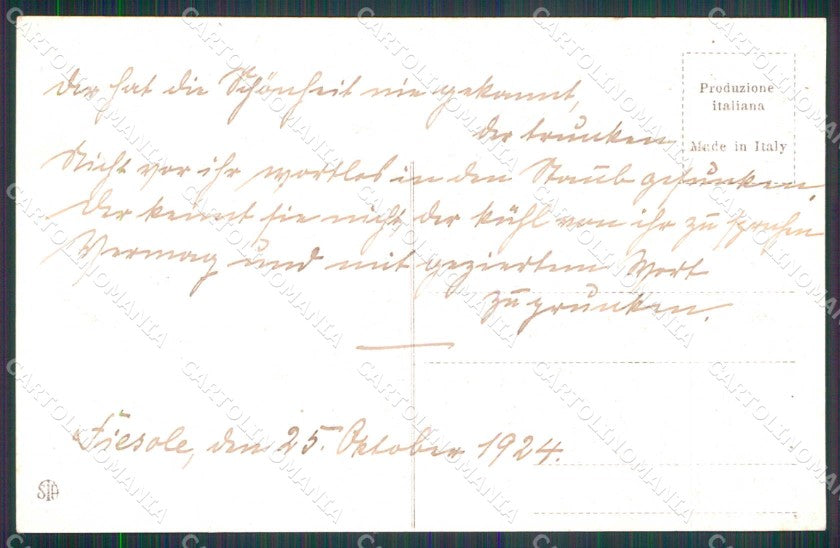 Der hat die Schönheit nie gekannt,
der trunken
Nicht vor ihr wortlos in den Staub gesunken.
Der kennt sie nicht der kühl von ihr zu sprechen
Vermag und mit geziertem Wort
zu prunken.
Fiesole, den 25. Oktober 1924.
Produzione
italiana
Made in Italy
SIA
CARTOLINOMANIA